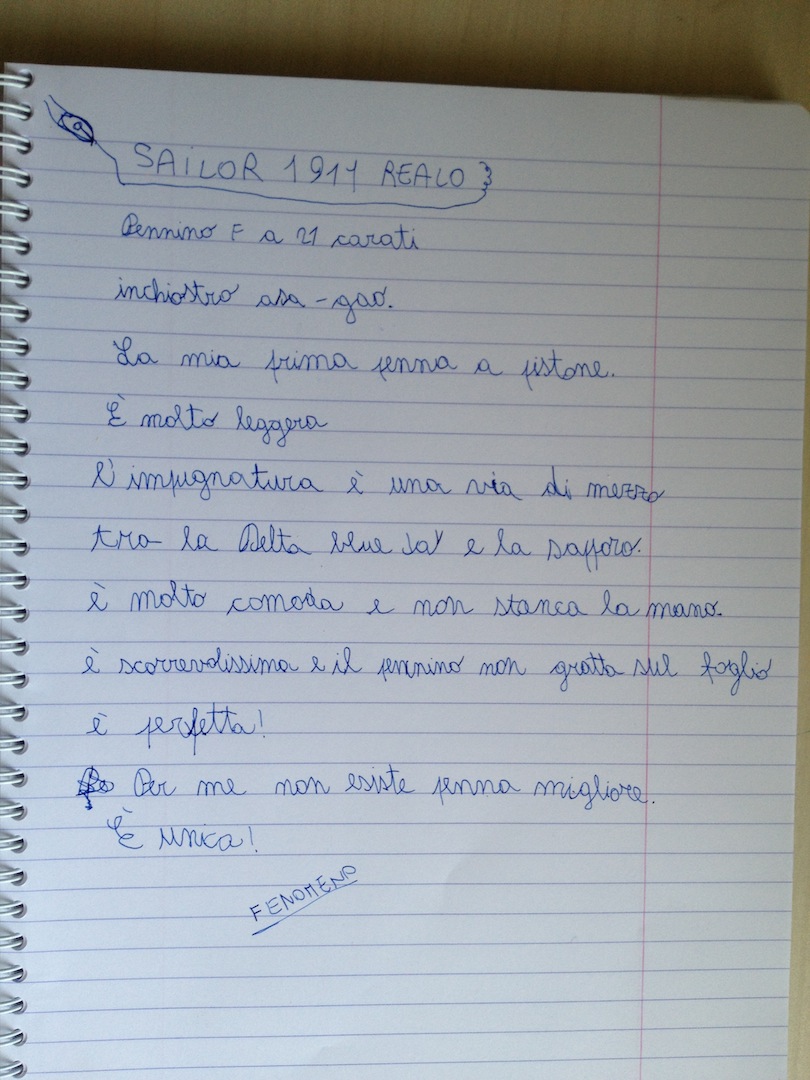 SAILOR 1911 REALO
Pennino F a 21 carati
inchiostro asa-gao.
La mia prima penna a pistone.
È molto leggera
L'impugnatura è una via di mezzo
tra la Delta blue Jay e la sapporo.
è molto comoda e non stanca la mano.
è scorrevolissima e il pennino non gratta sul foglio
è perfetta!
Per me non esiste penna migliore.
È unica!
FENOMENO